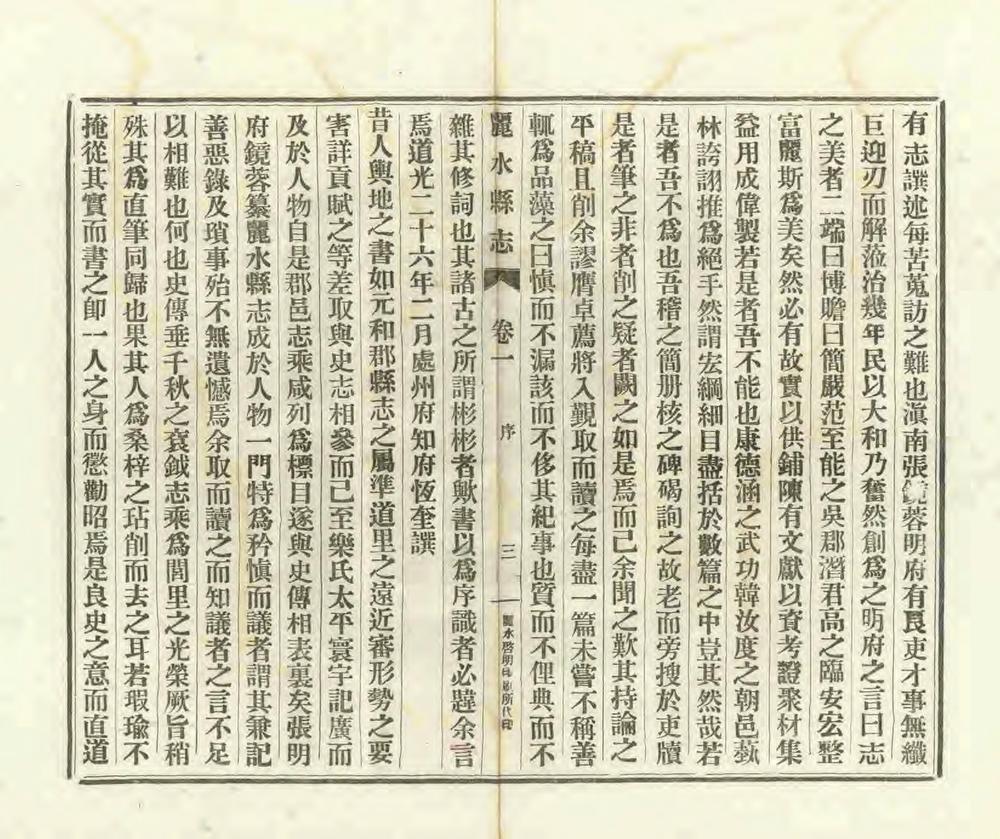 有志譔述每苦蒐訪之難也滇南張鏡蓉明府有良吏才事無纖
巨迎刃而解蒞治幾年民以大和乃奮然創爲之明府之言曰志
之美者二端曰博贍曰簡嚴范至能之吳郡潛君高之臨安宏整
富麗斯爲美矣然必有故實以供鋪陳有文獻以資考證聚材集
益用成偉製若是者吾不能也康德涵之武功韓汝度之朝邑蓺
林誇詡推爲絕手然謂宏綱細目盡括於數篇之中豈其然哉若
是者吾不爲也吾稽之簡册核之碑碣詢之故老而旁搜於吏牘
是者筆之非者削之疑者闕之如是焉而已余聞之歎其持論之
平稿且削余謬膺卓薦將入覲取而讀之每盡一篇未嘗不稱善
輒爲品藻之曰愼而不漏該而不侈其紀事也質而不俚典而不
麗水縣志 卷一 序 三 麗水啓明印刷所代印
雜其修詞也其諸古之所謂彬彬者歟書以爲序識者必韙余言
焉道光二十六年二月處州府知府恆奎譔
昔人輿地之書如元和郡縣志之屬準道里之遠近審形勢之要
害詳貢賦之等差取與史志相參而已至樂氏太平寰宇記廣而
及於人物自是郡邑志乘咸列爲標目遂與史傳相表裏矣張明
府鏡蓉纂麗水縣志成於人物一門特爲矜愼而議者謂其兼記
善惡錄及瑣事殆不無遺憾焉余取而讀之而知議者之言不足
以相難也何也史傳垂千秋之袞鉞志乘爲閭里之光榮厥旨稍
殊其爲直筆同歸也果其人爲桑梓之玷削而去之耳若瑕瑜不
掩從其實而書之卽一人之身而懲勸昭焉是良史之意而直道